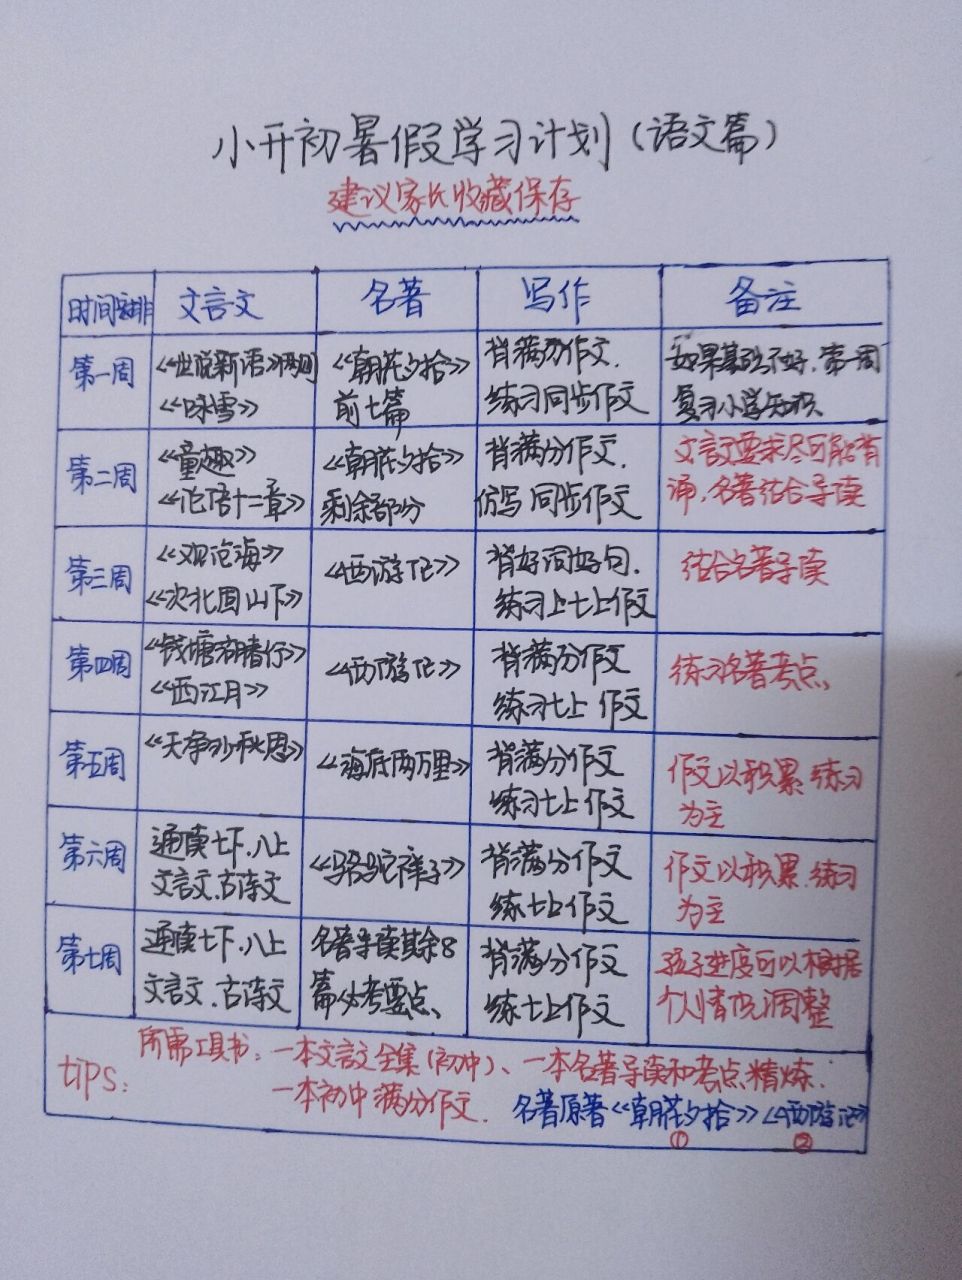 小升初暑假学习计划（语文篇）
建议家长收藏保存
时间安排 文言文 名著 写作 备注
第一周
《世说新语》两则
《咏雪》
《朝花夕拾》
前七篇
背满分作文.
练习同步作文
如果基础不好.第一周
复习小学知识
第二周
《童趣》
《论语十二章》
《朝花夕拾》
剩余部分
背满分作文.
仿写同步作文
文言文要求尽可能背
诵.名著结合导读
第三周
《观沧海》
《次北固山下》
《西游记》
背好词好句.
练习上七上作文
结合名著导读
第四周
《钱塘湖春行》
《西江月》
《西游记》
背满分作文
练习七上作文
练习名著考点、
第五周
《天净沙秋思》
《海底两万里》
背满分作文
练习七上作文
作文以积累练习
为主
第六周
通读七下.八上
文言文.古诗文
《骆驼祥子》
背满分作文
练七上作文
作文以积累.练习
为主
第七周
通读七下.八上
文言文.古诗文
名著导读其余8
篇必考要点、
背满分作文
练七上作文
孩子进度可以根据
个别情况调整
tips：
所需工具书：一本文言文全集(初中)、一本名著导读和考点、精炼.
一本初中满分作文.
名著原著《朝花夕拾》《西游记》
① ②